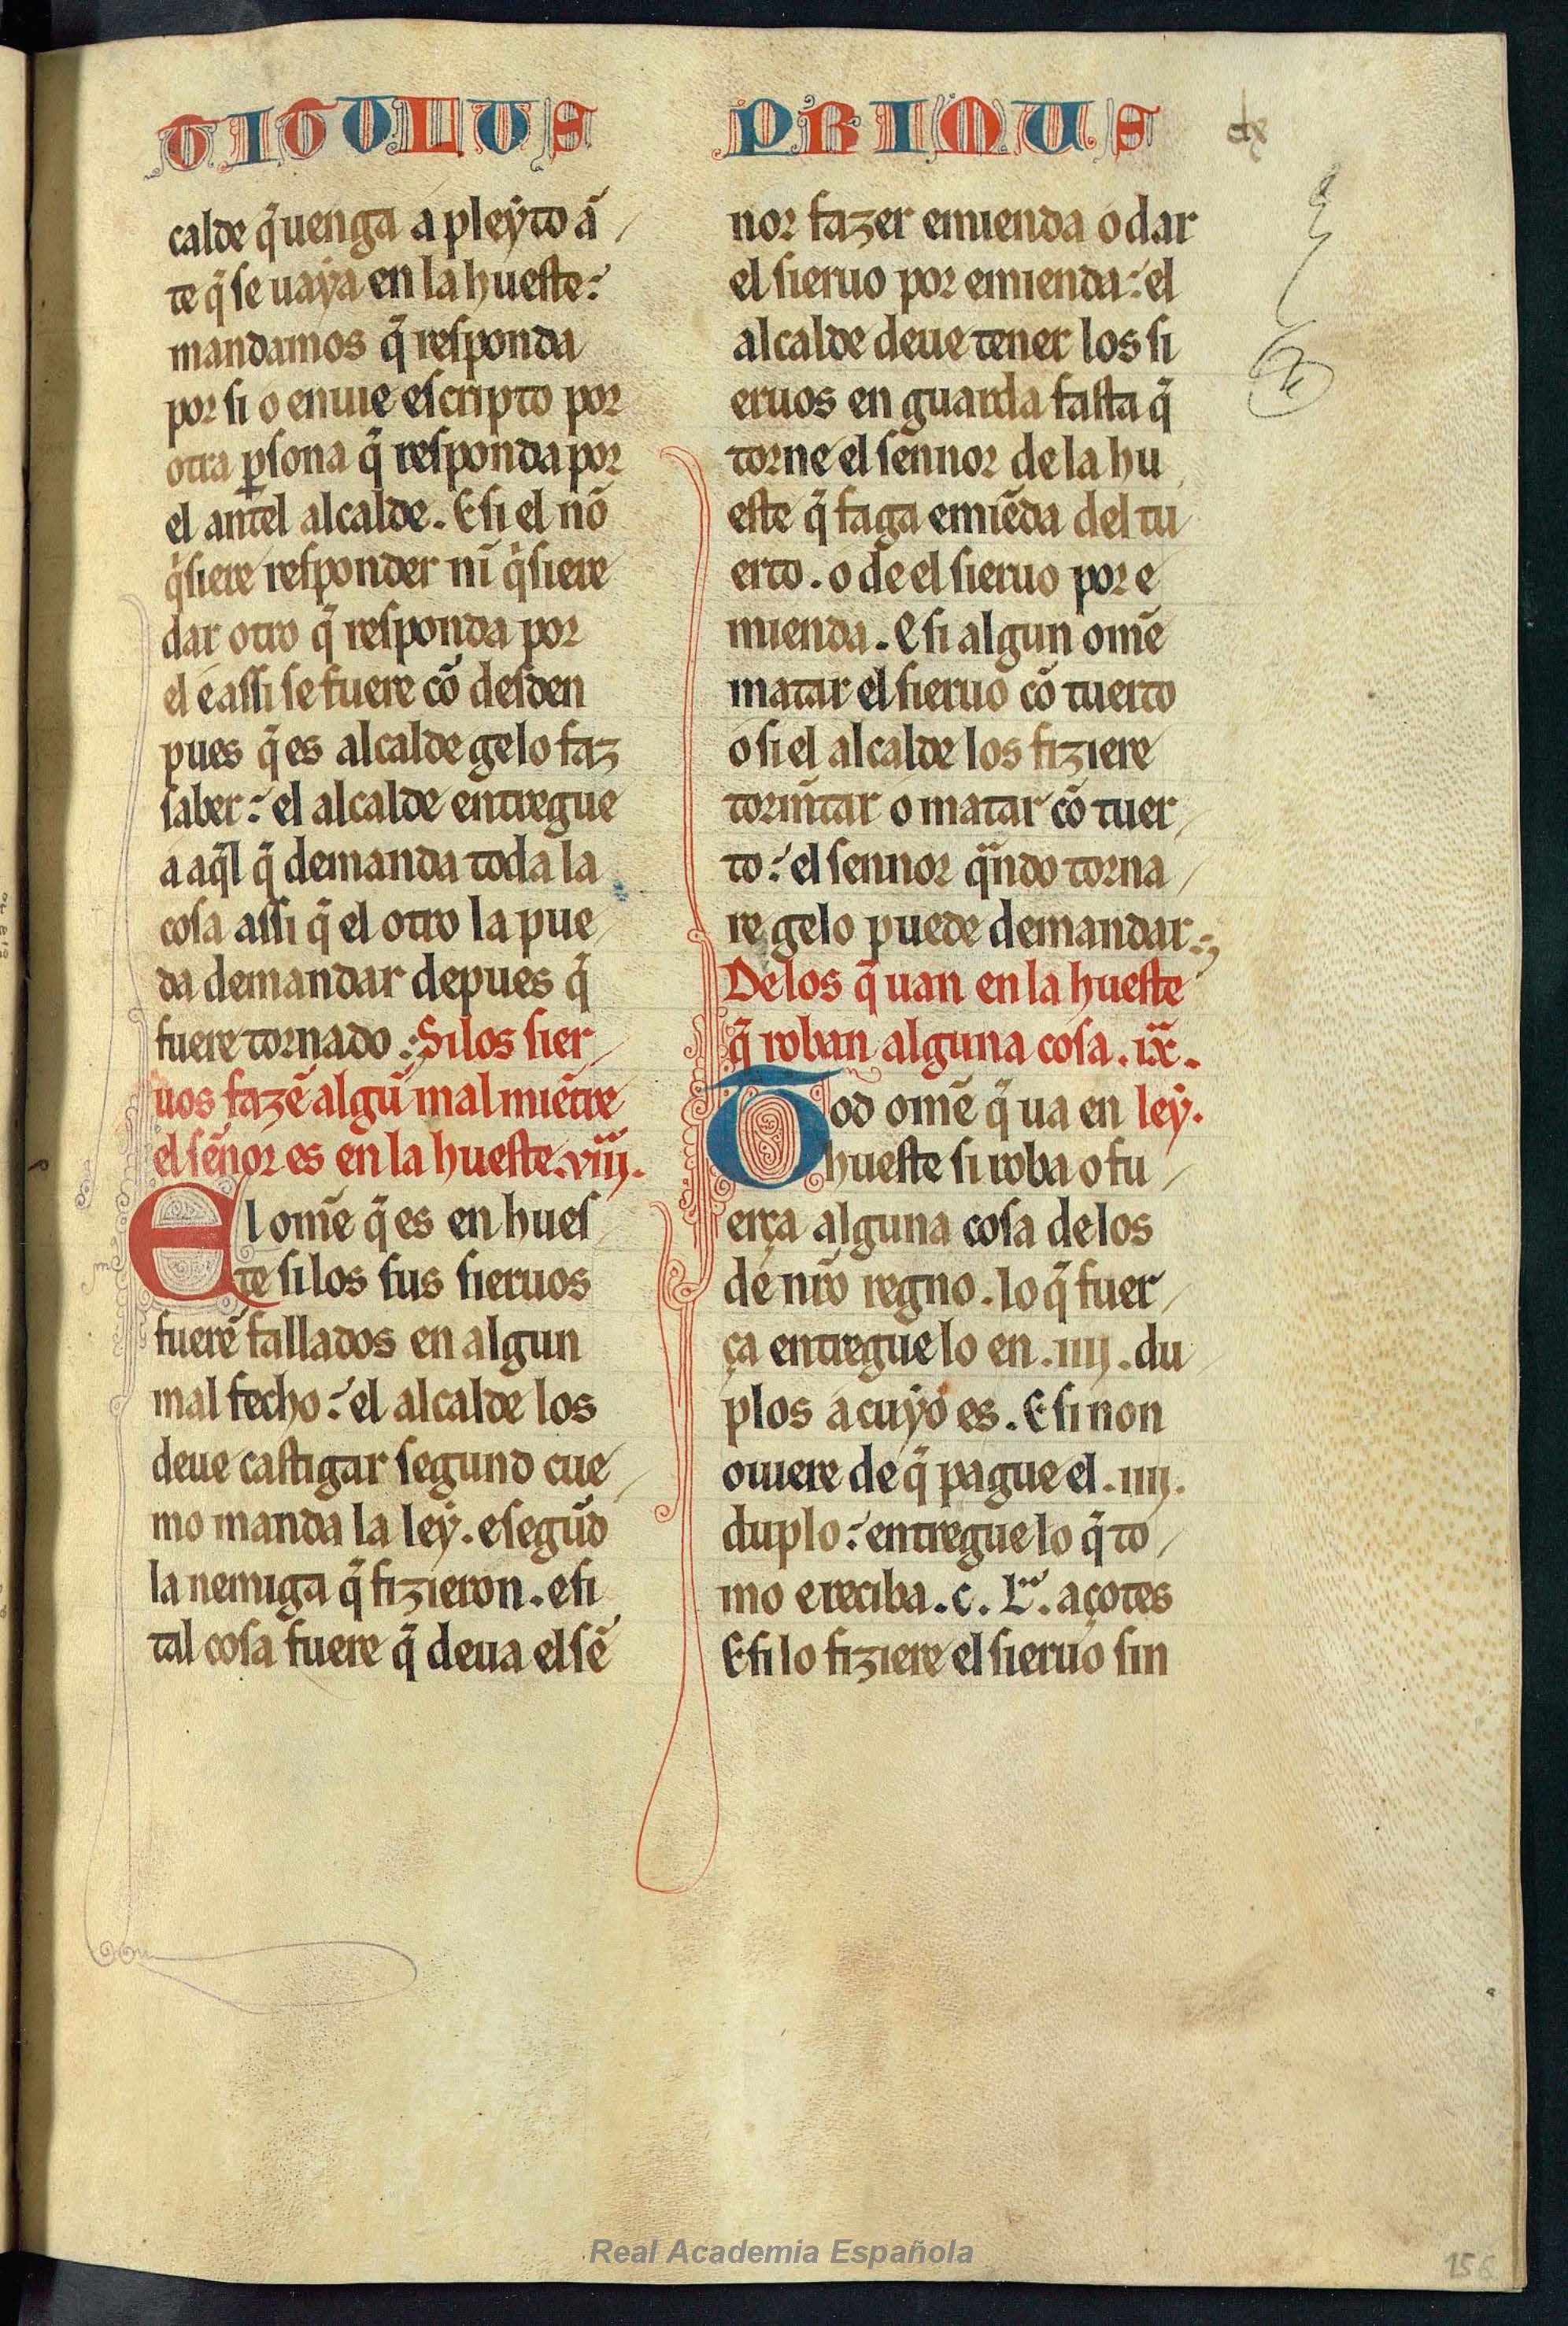 TITULUS PRIMUS
calde q̃ uenga a pleẏto ã
te q̃ se uaẏa en la hueste:
mandamos q̃ responda
por si o enuie escripto por
otra ꝑsona q̃ responda por
el antel alcalde. E si el nõ
q̃siere responder nĩ q̃siere
dar otro q̃ responda por
el e assi se fuere cõ desden
pues q̃ es alcalde gelo faz
saber: el alcalde entregue
a aq̃l q̃ demanda toda la
cosa assi q̃ el otro la pue
da demandar depues q̃
fuere tornado: Si los sier
uos fazẽ algũ mal miẽtre
el sẽnor es en la hueste. viii.
El omẽ q̃ es en hues
te si los sus sieruos
fuerẽ fallados en algun
mal fecho: el alcalde los
deue castigar segund cue
mo manda la leẏ. e segũd
la nemiga q̃ fizieron. e si
tal cosa fuere q̃ deua el sẽ
nor fazer emienda o dar
el sieruo por emienda: el
alcalde deue tener los si
eruos en guarda fasta q̃
torne el sennor de la hu
este q̃ faga emiẽda del tu
erto. o de el sieruo por e
mienda. E si algun omẽ
matar el sieruo cõ tuerto
o si el alcalde los fiziere
torm̃tar o matar cõ tuer
to: el sennor q̃ndo torna
re gelo puede demandar.
De los q̃ uan en la hueste
q̃ roban alguna cosa. ix.
Tod omẽ q̃ ua en leẏ.
hueste si roba o fu
erça alguna cosa de los
de nr̃o regno. lo q̃ fuer
ça entregue lo en .iiij. du
plos a cuẏo es. E si non
ouiere de q̃ pague el .iiij.
duplo: entregue lo q̃ to
mo e reciba .c. L. açotes
E si lo fiziere el sieruo sin
Real Academia Española
156